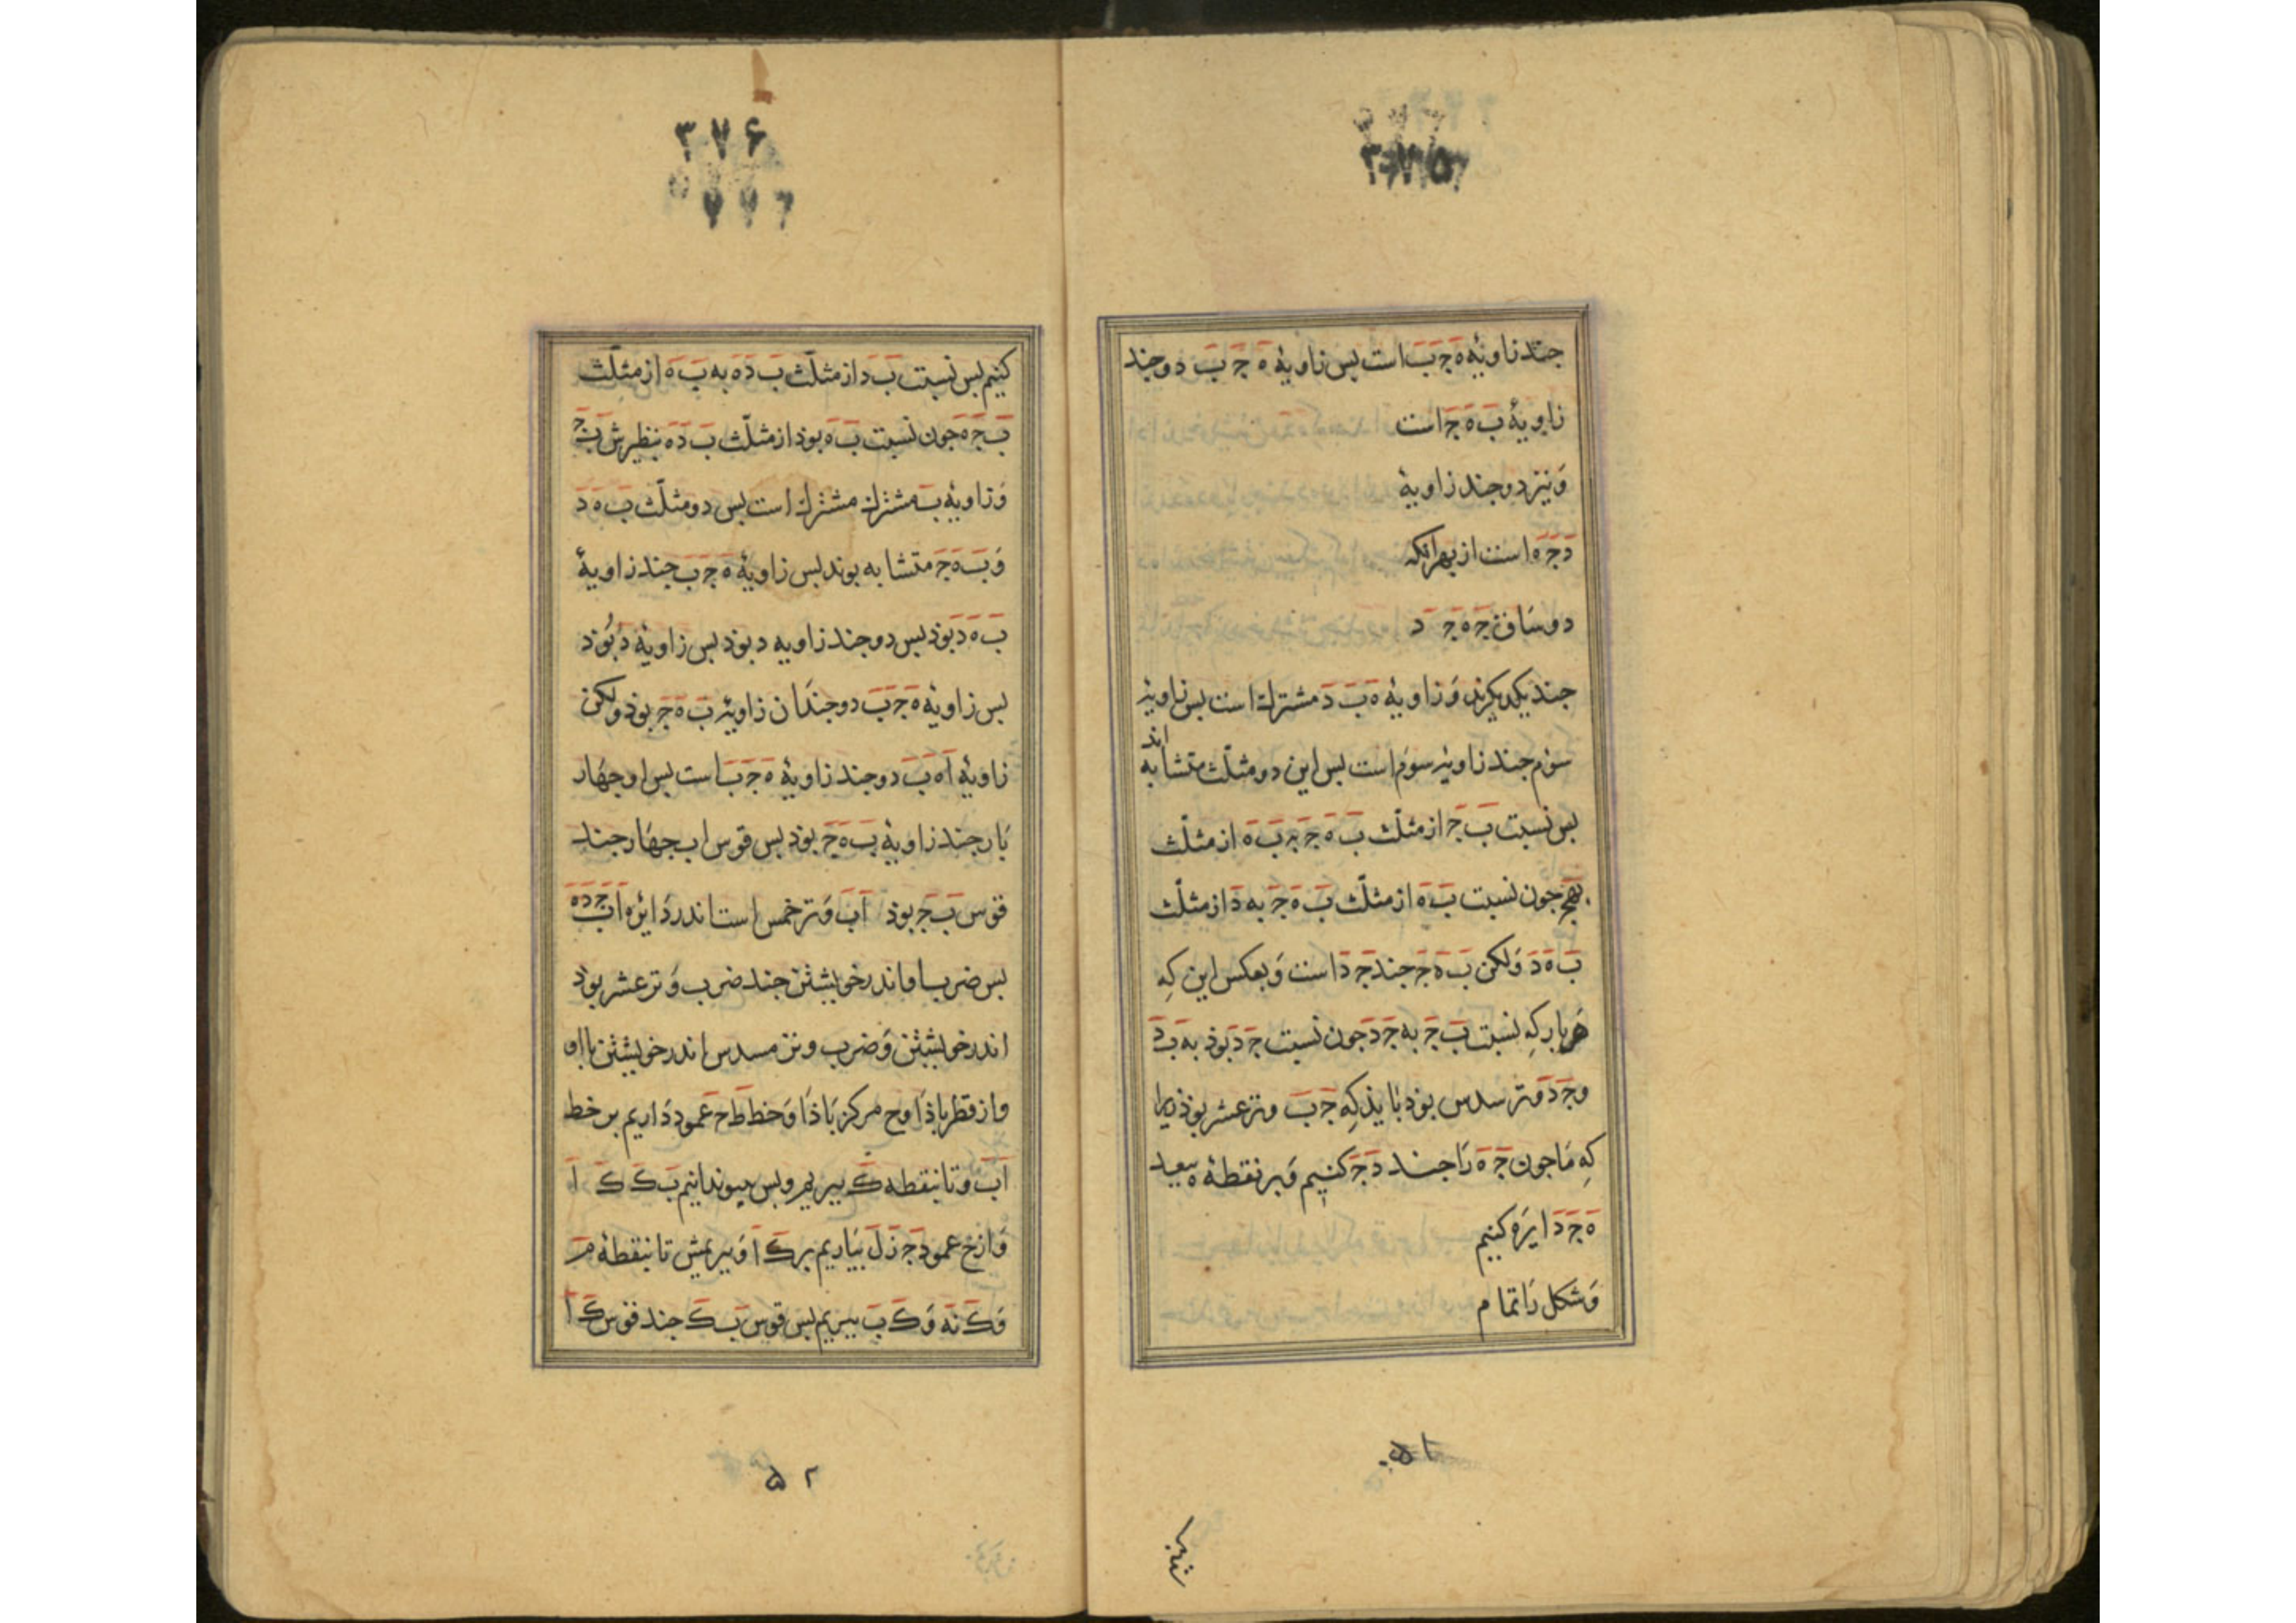 ۳۷۵
جند زاویهٔ ه ج ب است بس زاویهٔ ه ج ب دو جند
زاویهٔ ب ه ج است
وَ نیز دو جند زاویهٔ
د ج ه است از بهر انکه
دو ساق ج ه ج د
جند یکدیکرند وَ زاویهٔ ه ب د مشترك است بس زاویهٔ
سوم جند زاویهٔ سوم است بس این دو مثلّث متشابه اند
بس نسبت ب ج از مثلّث ب ه ج به ب ه از مثلّث
جون نسبت ب ه از مثلّث ب ه ج به د از مثلّث
ب ه د وَ لکن ب ه ج جند ج د است وَ بعکس این کِه
هر بار کِه نسبت ب ج به ج د جون نسبت ج د بوذ به ب د
و ج د وتر سدس بوذ بایذ کِه ج ب وتر عشر بوذ زیرا
کِه مَا جون ج ه رَا جند د ج کنیم وَ بر نقطهٔ ه ببعد
ه ج دایره کنیم
وَ شکل رَا تمام
۵۱
۳۷۶
کنیم بس نسبت ب د از مثلّث ب د ه به ب ه از مثلّث
ب ج ه جون نسبت ب ه بوذ از مثلّث ب د ه بنظیرش ب ج
وَ زاویهٔ ب مشترك مشترك است بس دو مثلّث ب ه د
وَ ب ه ج متشابه بوند بس زاویهٔ ه ج ب جند زاویهٔ
ب ه د بوذ بس دو جند زاویه د بوذ بس زاویهٔ د بُوَذ
بس زاویهٔ ه ج ب دو جندان زاویهٔ ب ه ج بوذ ولکن
زاویهٔ ا ه ب دو جند زاویهٔ ه ج ب است بس او جهار
بار جند زاویهٔ ب ه ج بوذ بس قوس ا ب جهار جند
قوس ب ج بوذ ا ب وَ تر خمس است اندر دَایرٔه ا ب ج د ه
بس ضرب او اندر خویشتن جند ضرب وَ تر عشر بوذ
اندر خویشتن وَ ضرب وتر مسدس اندر خویشتن با او
و از قطر باذ ا و ح مرکز باذا وَ خط ط ح عمود دَاریم بر خط
ا ب و تا بنقطه ك ببریم و بس بیوندانیم ب ك ك ا
وَ از ح عمود ج ز ل بیاریم بر ك ا وَ ببریمش تا بنقطهٔ م
وَ ك نه وَ ك ب ببریم بس قوس ب ك جند قوس ك ا
۵۲